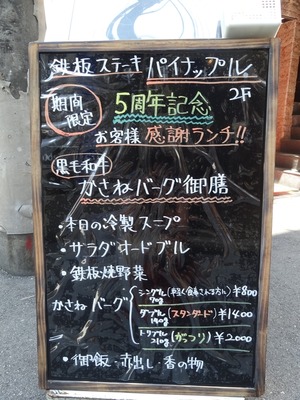 鉄板ステーキ パイナップル
2F
期間
限定
5周年記念
お客様 感謝ランチ!!
黒毛和牛
かさねバーグ御膳
・本日の冷製スープ
・サラダオードブル
・鉄板焼野菜
かさねバーグ
シングル(軽く食べれる方に) ¥800
70g
ダブル(スタンダード) ¥1400
140g
トリプル(がっつり) ¥2000
210g
・御飯・赤出し・香の物